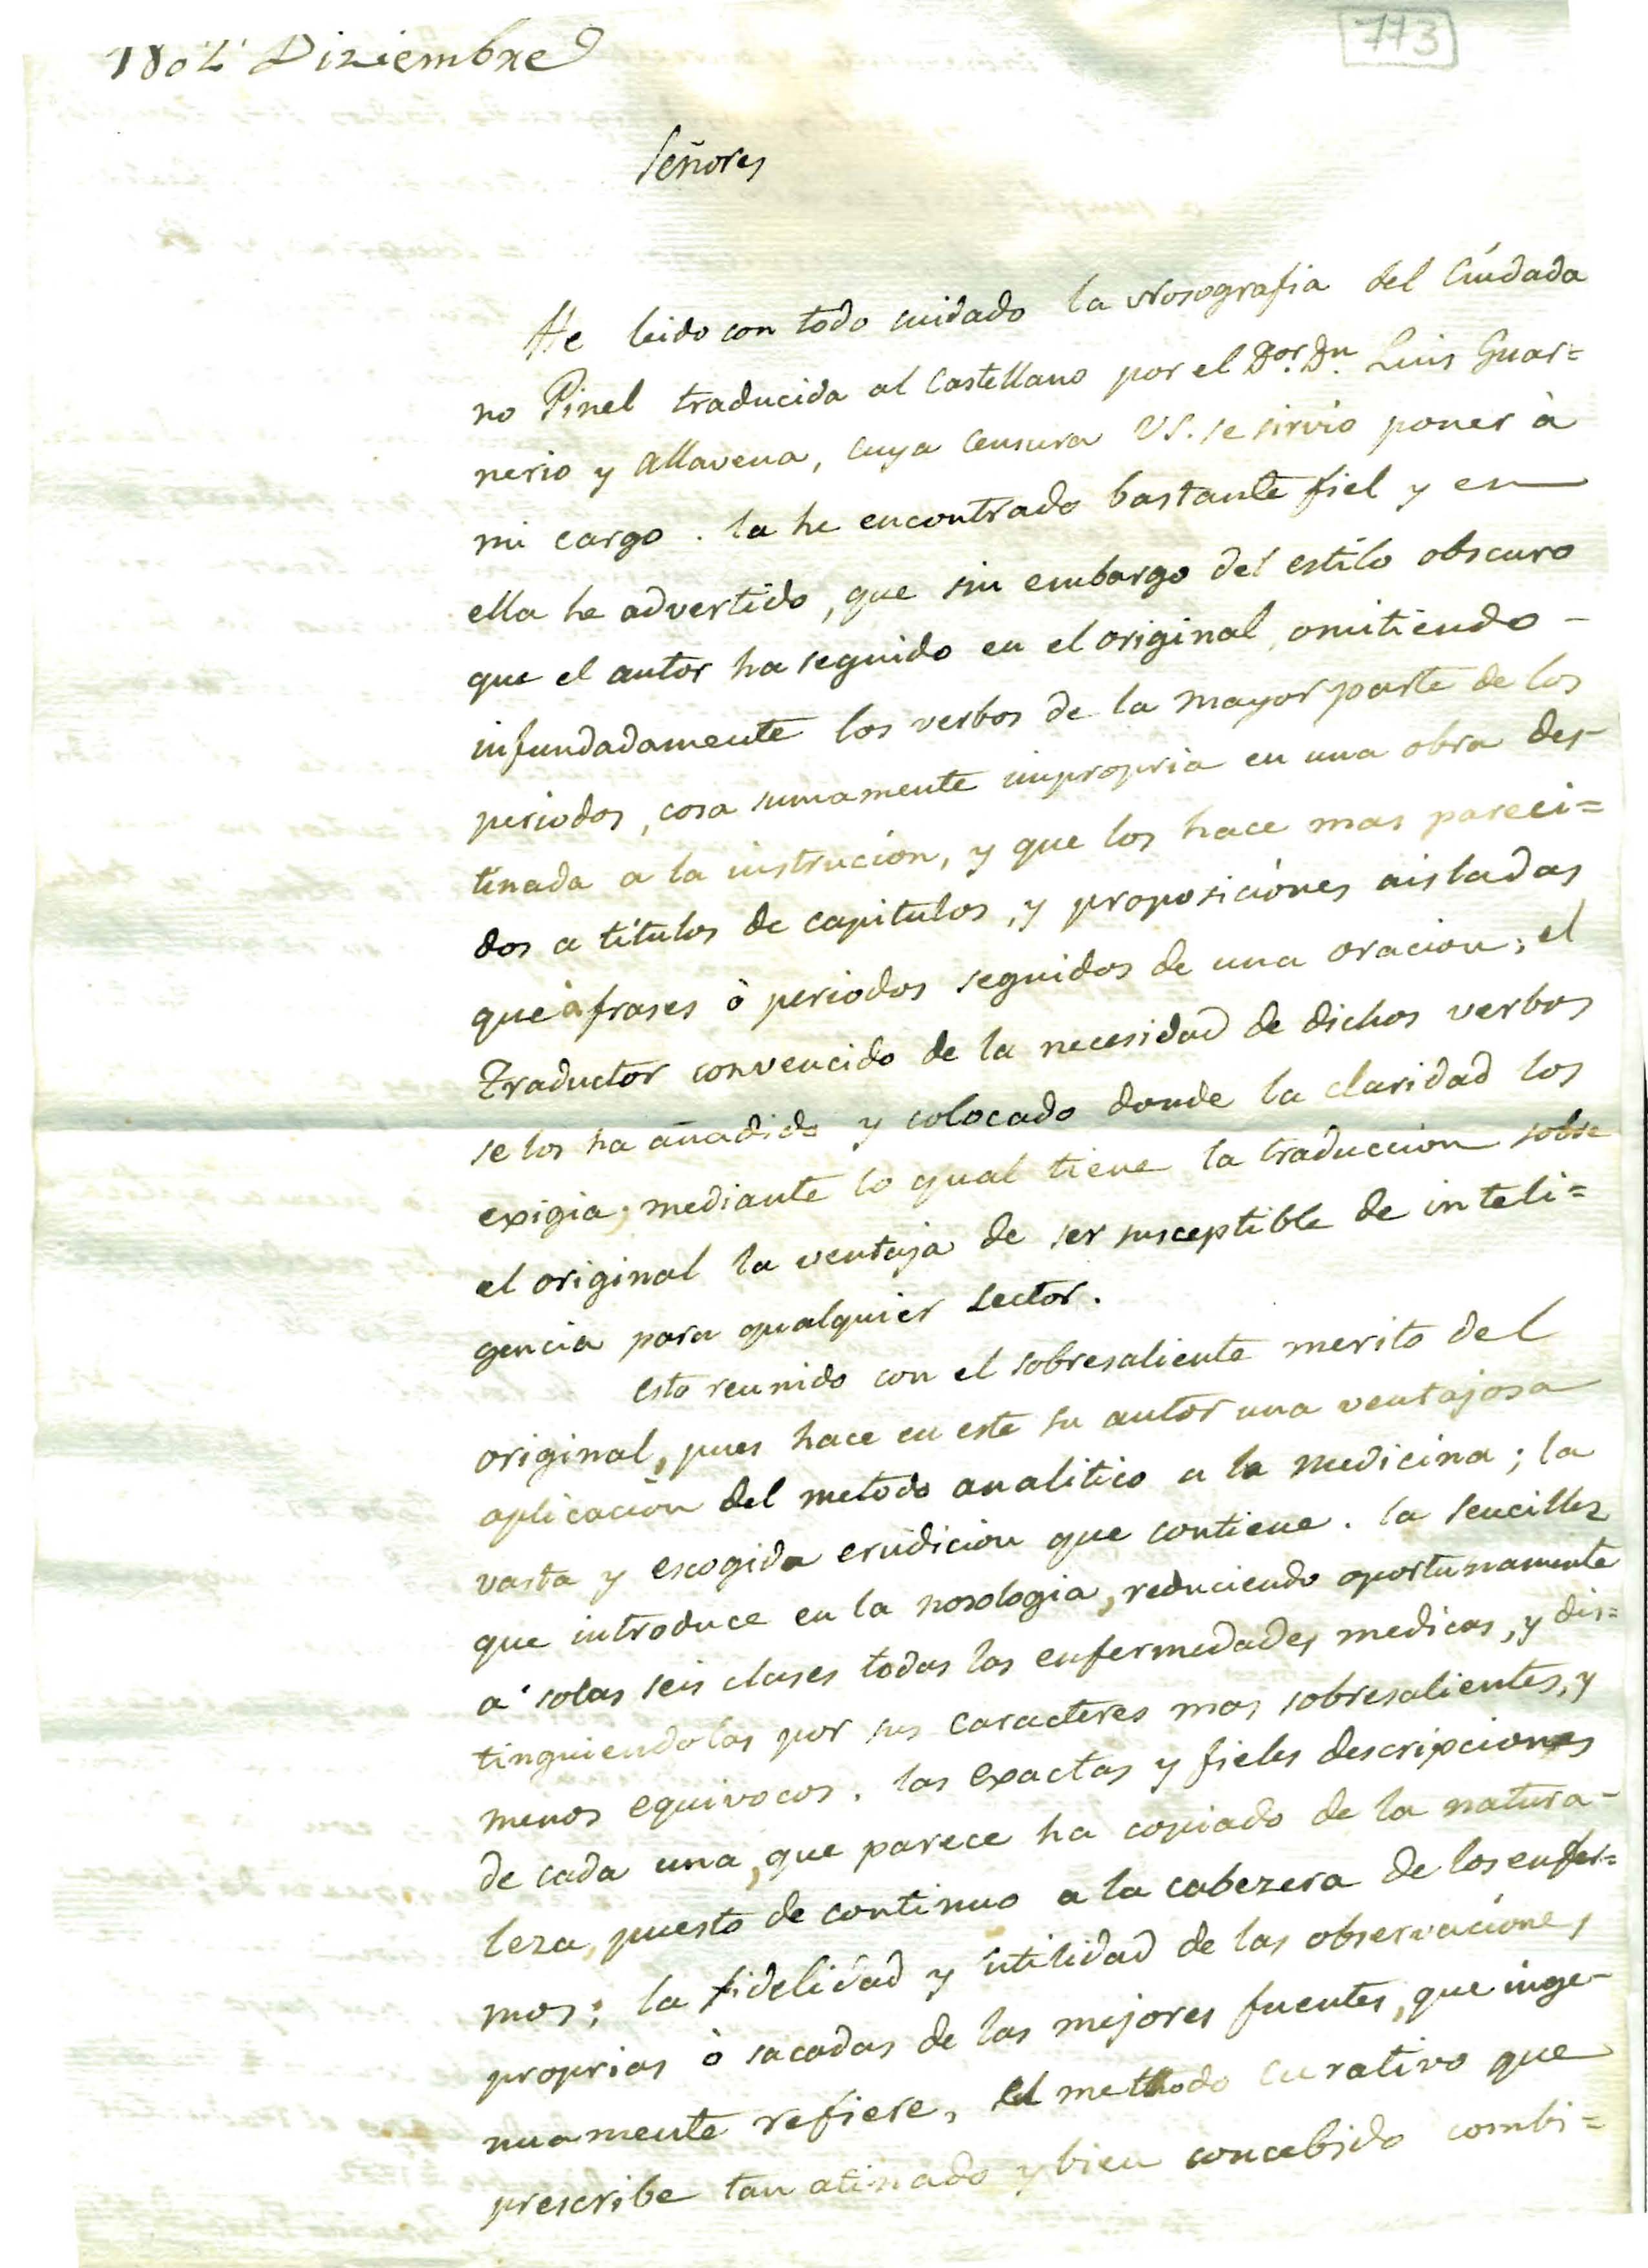 1802 Diziembre
773
Señores
He leido con todo cuidado la Nosografia del Ciudada
no Pinel traducida al Castellano por el Dor. Dn. Luis Guar=
nerio y Allavena, cuya Censura VS. se sirvió poner à
mi cargo. la he encontrado bastante fiel y en
ella he advertido, que sin embargo del estilo obscuro
que el autor ha seguido en el original, omitiendo -
infundadamente los verbos de la mayor parte de los
periodos, cosa sumamente impropria en una obra des-
tinada a la instrucion, y que los hace mas pareci=
dos a titulos de capitulos, y proposiciones aisladas
que à frases ò periodos seguidos de una oracion; el
Traductor convencido de la necesidad de dichos verbos
se los ha añadido y colocado donde la claridad los
exigia; mediante lo qual tiene la traduccion sobre
el original la ventaja de ser susceptible de inteli=
gencia para qualquier Lector.
esto reunido con el sobresaliente merito del
original, pues hace en este su autor una ventajosa
aplicacion del metodo analitico a la medicina; la
vasta y escogida erudicion que contiene. la sencillez
que introduce en la nosologia, reduciendo oportunamente
a' solas seis clases todas las enfermedades medicas, y dis=
tinguiendolas por sus caracteres mas sobresalientes, y
menos equivocos. las exactas y fieles descripciones
de cada una, que parece ha copiado de la natura-
leza, puesto de continuo a la cabezera de los enfer=
mos; la fidelidad y utilidad de las observaciones
proprias ò sacadas de las mejores fuentes, que inge-
nuamente refiere, el methodo curativo que
prescribe tan atinado y bien concebido combi=